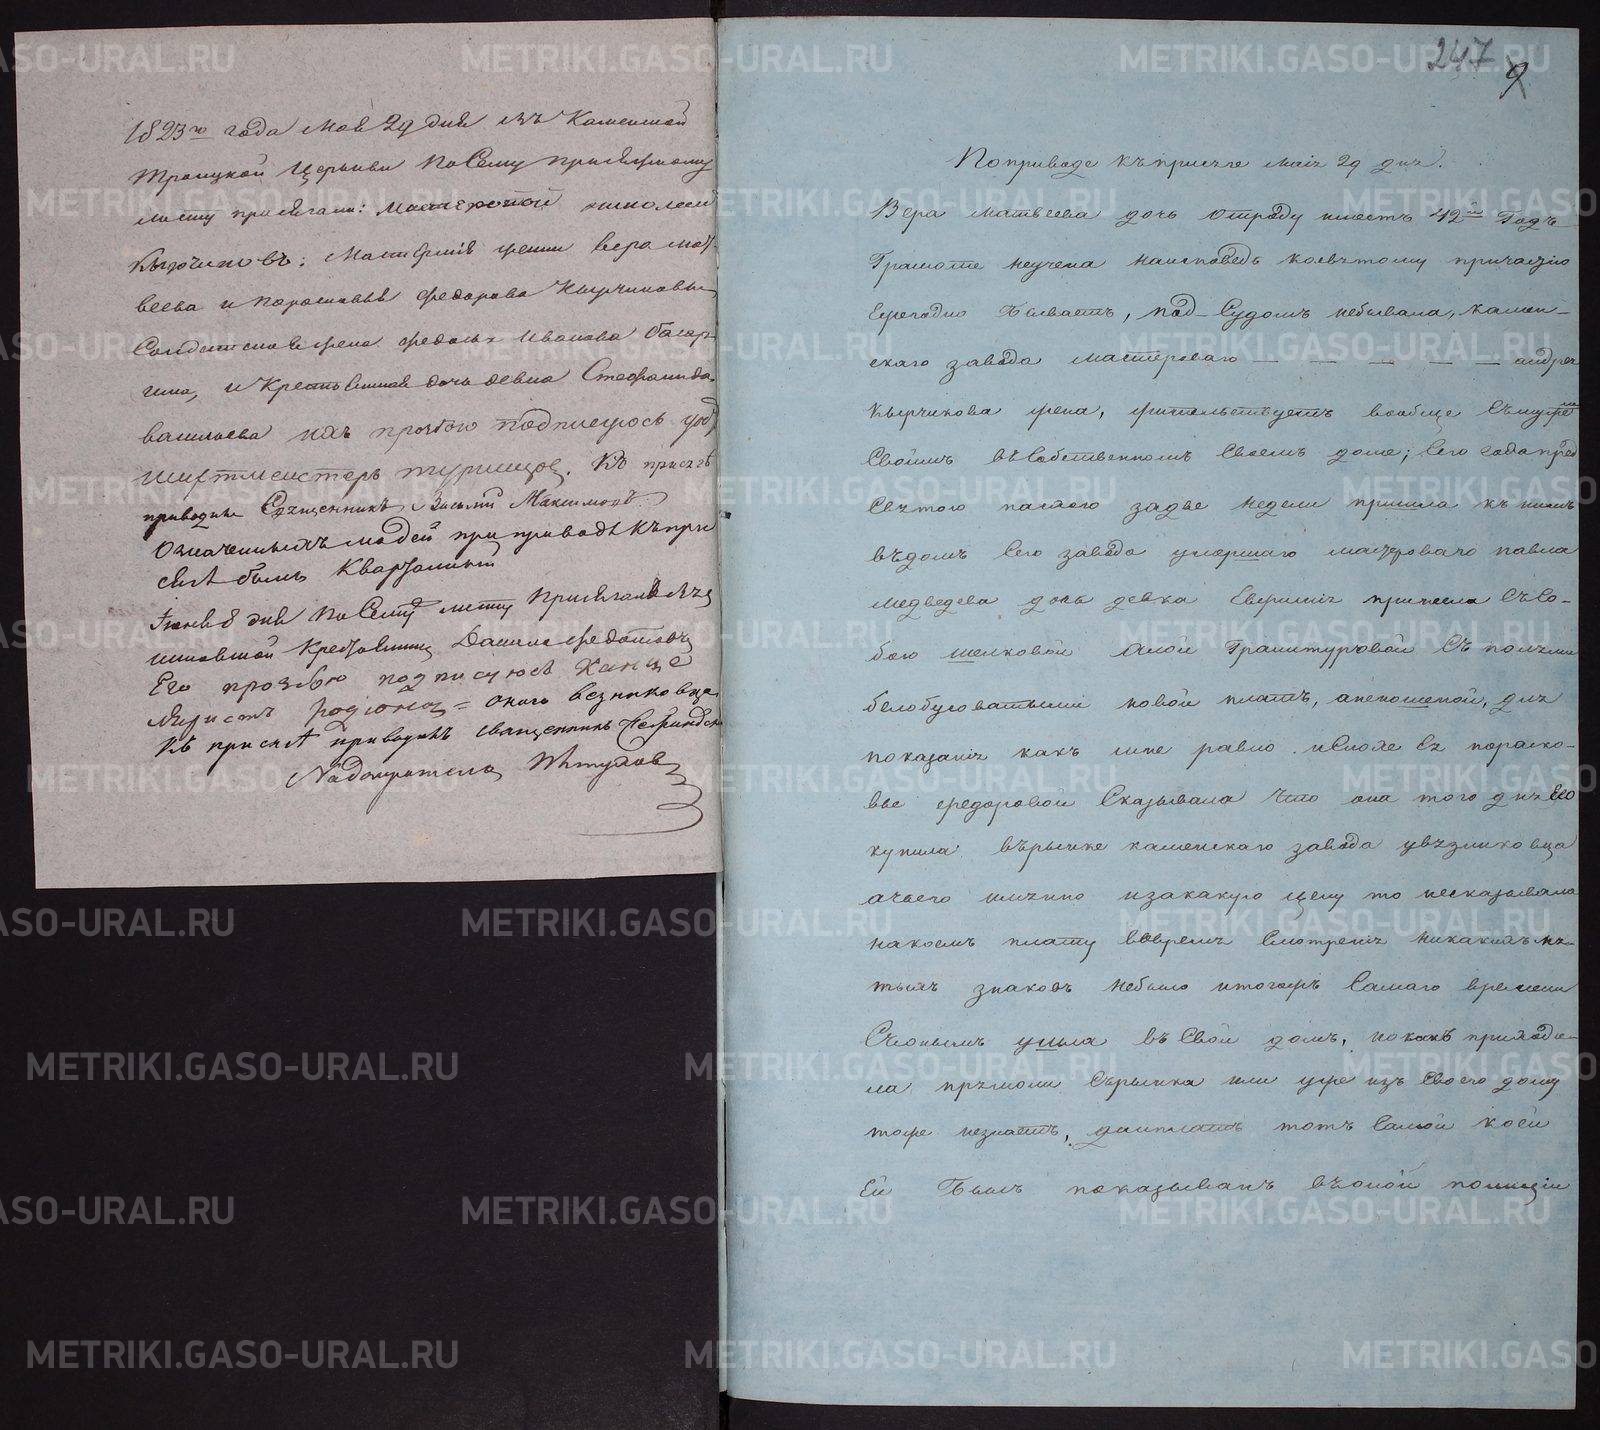 1823го года мая 29 дня въ Каменской
Троицкой Церькви по Сему присяжному
листу присягали: мастеровой николай
Кырчиковъ; мастерские жены вера мат-
веева и парасковья федорова Кырчиковы
Солдатская жена федосья Иванова
и Крестьянская дочь девка Стефанида
васильева ихъ прозбою подписуюсь
шихтмейстеръ турышцов. Къ присяге
приводилъ Священникъ Василий Максимовъ
Означенныхъ людей при приводѣ къ при
сягѣ былъ Квартальный
Июня 8 дня по Сему листу присягалъ
Крестьянинъ Данила федотовъ
Его прозбою подписуюсь Канце
ляристъ родионъ
Къ присягѣ приводилъ священникъ
Надзиратель
247
9
По приводе къ присяге маия 29 дня.
Вера матвеева дочь отроду имеетъ 42й годъ
Грамоте неучена наисповедь икосвятому причастию
Ежегодно бываетъ, под Судомъ небывала, камен-
скаго завода мастероваго — — — — — андрея
Кырчикова жена, жительствуетъ вообще Смужемъ
Своимъ въ Собственномъ Своемъ доме; Сего года пред
Святою пасхою задве недели пришла къ нимъ
въдомъ Сего завода умершаго мастероваго павла
медведева дочь девка Еверсиния принесла Съсо-
бою шелковой алой Гранитуровой Съ полосами
белобуроватыми новой платъ, аненошеной, для
показания какъ мне равно исноxe Ея параско-
вье федоровой Сказывала Что она того дня Его
купила върынке каменскаго завода увязниковца
ачьего имянно изакакую цену то несказывала
накоемъ плату вовремя Смотрения никакихъ мя-
тыхъ знаковъ небыло итогожъ Самаго времени
Съонымъ ушла въ Свой домъ, но какъ приходи-
ла прямоли Срынка или уже изъ Своего дому
тоже незнаетъ, данплатъ тотъ Самой коей
Ей былъ показыванъ въоной полиции
METRIKI.GASO-URAL.RU